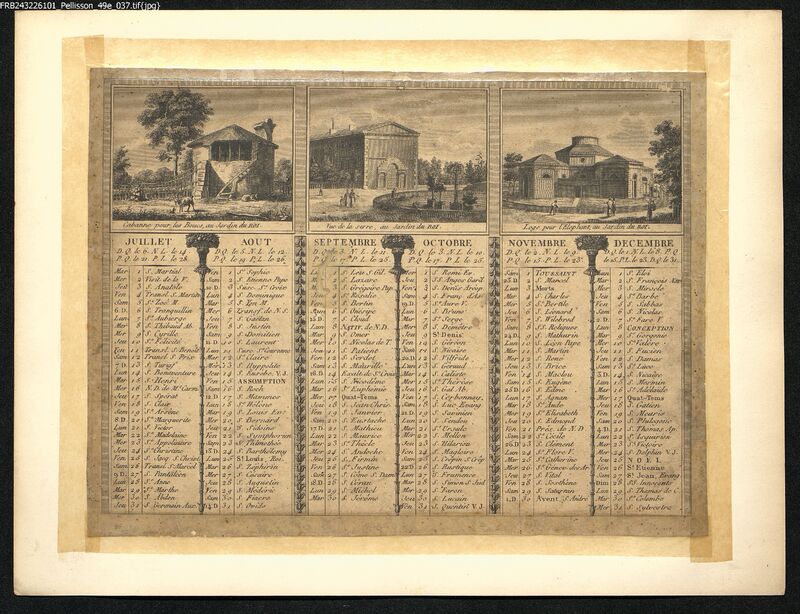 FRB243226101_Pellisson_49e_037.tif{jpg}
Cabanne pour les Boucs, au Jardin du ROI.
Vue de la serre, au Jardin du ROI.
Loge pour l'Elephant, au Jardin du ROI.
JUILLET
D.Q. le 6. N.L. le 14
P.Q. le 21. P.L. le 28.
Mar 1 S. Martial
Mer 2 Visit. de la V.
Jeu 3 S. Anatole
Ven 4 Transl. S. Martin
Sam 5
6 D. S. Tranquillin
Lun 7 Ste Aubierge
Mar 8 S. Thibaud Ab.
Mer 9 S. Cyrille
Jeu 10 Ste Félicité
Ven 11 Transl. S. Benoît
Sam 12
7 D. 13 S. Turiaf
Lun 14 S. Bonaventure
Mar 15 S. Henri
Mer 16 N.D. de Mt Carm.
Jeu 17 S. Spérat
Ven 18 S. Clair
Sam 19 S. Arsène
8 D. 20 Ste Marguerite
Lun 21 S. Victor
Mar 22 Ste Madelaine
Mer 23 S. Apollinaire
Jeu 24 Ste Christine
Ven 25 S. Jacq. S. Christ.
Sam 26 Transl. S. Marcel
9 D. 27 S. Pantaléon
Lun 28 Ste Anne
Mar 29 Ste Marthe
Mer 30 S. Abdon
Jeu 31 S. Germain Aux.
AOUT
D.Q. le 5. N.L. le 12.
P.Q. le 19. P.L. le 26.
Ven 1 Ste Sophie
Sam 2 S. Etienne Pape
3 Susc. Ste Croix
Lun 4 S. Dominique
Mar 5 S. Yon M.
Mer 6 Transf. de N.S.
Jeu 7 S. Gaëtan
Ven 8 S. Justin
Sam 9 S. Domitien
10 S. Laurent
Lun 11 Susc. Ste Couronne
Mar 12 Ste Claire
Mer 13 S. Hyppolite
Jeu 14 S. Eusèbe. V.J.
Ven 15 ASSOMPTION
Sam 16 S. Roch
17 S. Mammès
Lun 18 Ste Hélène
Mar 19 S. Louis Ev.
Mer 20 S. Bernard
Jeu 21 S. Privat
Ven 22 S. Symphorien
Sam 23 S. Thimothée
24 S. Barthélemy
Lun 25 St Louis Roi.
Mar 26 S. Zéphirin
Mer 27 S. Césaire
Jeu 28 S. Augustin
Ven 29 S. Médéric
Sam 30 S. Fiacre
31 S. Ovide
SEPTEMBRE
Lun 1 S. Leu S. Gil.
2 S. Lazare
3 S. Grégoire Pap.
4 Ste Rosalie
Ven 5 S. Bertin
Sam 6 S. Onésipe
7 S. Cloud
Lun 8 NATIV. de N.D.
Mar 9 S. Omer
Mer 10 S. Nicolas de T.
Jeu 11 S. Patient
Ven 12 S. Serdot
Sam 13 S. Maurille
14 Exalt. de Ste Croix
Lun 15 S. Nicodème
Mar 16 Ste Euphémie
Mer 17 Quat-Tems
Jeu 18 S. Jean Chris.
Ven 19 S. Janvier
Sam 20 S. Eustache
21 S. Mathieu
Lun 22 S. Maurice
Mar 23 Ste Thècle
Mer 24 S. Andoche
Jeu 25 S. Firmin
Ven 26 Ste Justine
Sam 27 S. Côme S. Dami
18 D. 28 S. Céran
Lun 29 S. Michel
Mar 30 S. Jérôme
OCTOBRE
D.Q. le 3. N.L. le 10.
P.Q. le 17. P.L. le 25.
Mer 1 S. Remi Ev.
Jeu 2 SS. Anges Gard
Ven 3 S. Denis Aréop
Sam 4 S. Franç. d'As
19 D. 5 Ste Aure V.
Lun 6 S. Bruno
Mar 7 S. Serge
Mer 8 S. Démètre
Jeu 9 St Denis
Ven 10 S. Géréon
Sam 11 S. Nicaise
12 S. Vilfride
Lun 13 S. Geraud
Mar 14 S. Caliste
Mer 15 Ste Thérèse
Jeu 16 S. Gal Ab.
Ven 17 S. Cerbonnay
Sam 18 S. Luc Evang.
21 D. 19 S. Savinien
Lun 20 S. Sendou
Mar 21 Ste Ursule
Mer 22 S. Mellon
Jeu 23 S. Hilarion
Ven 24 S. Magloire
Sam 25 S. Crépin S. Crép
22 D. 26 S. Rustique
Lun 27 S. Frumence
Mar 28 S. Simon S. Jud
Mer 29 S. Faron
Jeu 30 S. Lucain
Ven 31 S. Quentin V.J.
NOVEMBRE
D.Q. le 2. N.L. le 9.
Sam 1 TOUSSAINT
23 D. 2 S. Marcel
Lun 3 Morts
Mar 4 S. Charles
Mer 5 Ste Bertile
Jeu 6 S. Léonard
Ven 7 S. Wilebrod
Sam 8 SS. Reliques
24 D. 9 S. Mathurin
Lun 10 S. Léon Pape
Mar 11 S. Martin
Mer 12 S. René
Jeu 13 S. Brice
Ven 14 S. Maclou
Sam 15 S. Eugène
25 D. 16 S. Edme
Lun 17 S. Agnan
Mar 18 Ste Aude
Mer 19 Ste Elisabeth
Jeu 20 S. Edmond
Ven 21 Prés. de N.D.
Sam 22 Ste Cécile
26 D. 23 S. Clément
Lun 24 Ste Flore V.
Mar 25 Ste Catherine
Mer 26 Ste Genev. des Ar.
Jeu 27 S. Vital
Ven 28 S. Sosthène
Sam 29 S. Saturnin
1. D. 30 Avent S. André
DECEMBRE
D.Q. le 1. N.L. le 8. P.Q
Lun 1 S. Eloi
Mar 2 S. François Xav
Mer 3 S. Mirocle
Jeu 4 Ste Barbe
Ven 5 S. Sabbas
Sam 6 S. Nicolas
2. D. 7 Ste Fare V.
Lun 8 CONCEPTION
Mar 9 Ste Gorgonie
Mer 10 Ste Valère
Jeu 11 S. Fucien
Ven 12 S. Damas
Sam 13 Ste Luce
3. D. 14 S. Nicaise
Lun 15 S. Mesmin
Mar 16 Ste Adélaïde
Mer 17 Quat-Tems
Jeu 18 S. Gatien
Ven 19 S. Meuris
Sam 20 S. Philogone
4. D. 21 S. Thomas Ap.
Lun 22 S. Ischyrion
Mar 23 Ste Victoire
Mer 24 S. Delphin V.J.
Jeu 25 NOEL
Ven 26 St Etienne
Sam 27 St Jean, Evang
Dim 28 SS. Innocents
Lun 29 S. Thomas de C.
Mar 30 Ste Colombe
Mer 31 S. Sylvestre